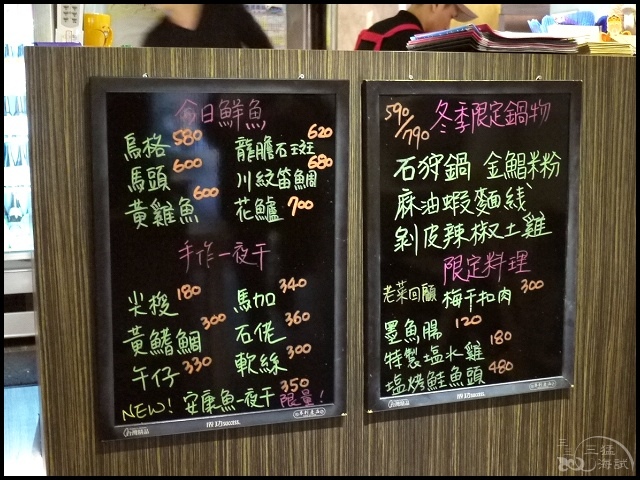 今日鮮魚
烏格 580 龍膽石斑 620
馬頭 600 川紋笛鯛 680
黃雞魚 600 花鱸 700
手作一夜干
尖梭 180 馬加 340
黃鰭鯛 300 石佬 360
午仔 330 軟絲 300
NEW! 安康魚一夜干 350 限量!
590/790 冬季限定鍋物
石狩鍋 金鯧米粉
麻油蝦麵线
剝皮辣椒土雞
限定料理
老菜回顧 梅干扣肉 300
墨魚腸 120
特製塩水雞 180
塩烤鮭魚頭 480
success
success
三猛
海試